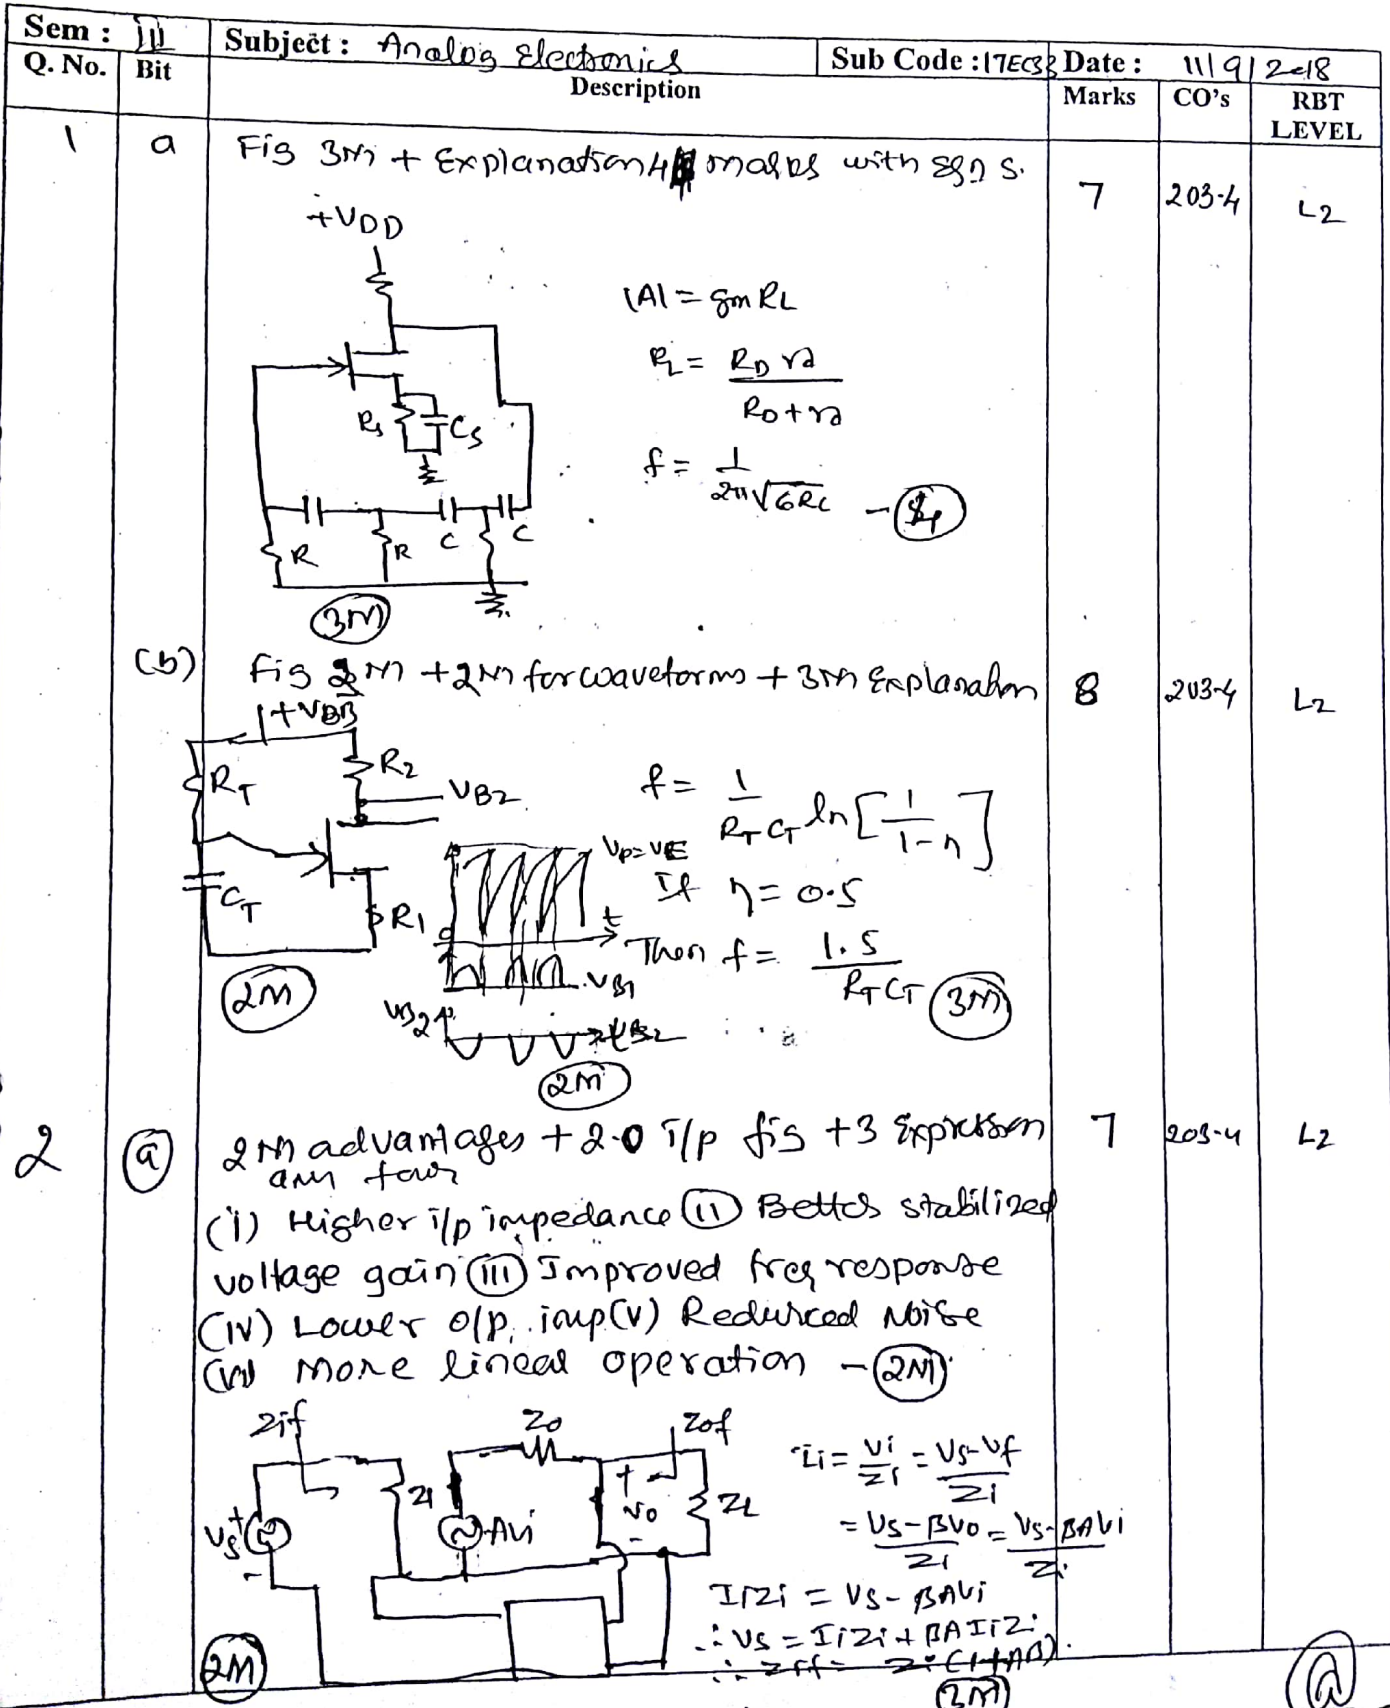 Sem : III Subject : Analog Electronics Sub Code :17EC33 Date : 11/9/2018
Q. No. Bit Description Marks CO's RBT LEVEL
1 a Fig 3M + Explanation 4 marks with eqn s. 7 203-4 L2
+VDD
|A| = gm RL
RL = RD rd / RD + rd
Rs CS
f = 1 / 2π√6RC - 4
R R C C
3M
(b) Fig 3M + 2M for waveforms + 3M Explanation 8 203-4 L2
+VBB
RT R2 VB2
f = 1 / RT CT ln [ 1 / 1-η ]
Vp=VE
If η = 0.5
CT R1 t
Then f = 1.5 / RT CT 3M
VB1
2M
VB2
2M
2 a 2M advantages + 2.0 i/p fig + 3 Expression 7 203-4 L2
any four
(i) Higher i/p impedance (ii) Better stabilized
voltage gain (iii) Improved freq response
(iv) Lower o/p. imp (v) Redurced Noise
(vi) more linear operation - 2M
Zif Zo Zof
Ii = Vi / Zi = Vs-Vf / Zi
Zi + Vo - ZL
Vs + - AVi
= Vs-βVo / Zi = Vs-βAVi / Zi
IiZi = Vs - βAVi
∴ Vs = IiZi + βA IiZi
∴ Zif = Zi (1+Aβ).
2M 3M